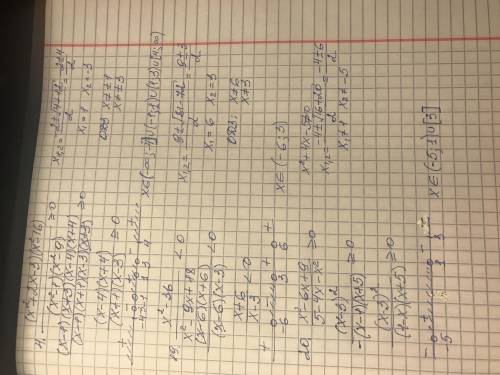 (x²+2x-3)(x²-16)
(x²-1)(x²-9) ≥0
(x-1)(x+3)(x-4)(x+4)
(x-1)(x+1)(x-3)(x+3) ≥0
(x-4)(x+4)
(x+1)(x-3) ≥0
-4 -3 -1 1 3 4
x₁,₂= -2±√4+12 / 2 = -2±4 / 2
x₁=1 x₂=-3
ОДЗ x≠±1
x≠±3
x∈(-∞;-4]∪(-1;1)∪(1;3)∪[4;∞)
19. x²-36
x²-9x+18 <0
(x-6)(x+6)
(x-6)(x-3) <0
x+6
x-3 <0
+ - + +
-6 3 6
x₁,₂= 9±√81-72 / 2 = 9±3 / 2
x₁=6 x₂=3
ОДЗ; x≠6
x≠3
x∈(-6;3)
20. x²-6x+9
5-4x-x² ≥0
(x-3)²
-(x-1)(x+5) ≥0
(x-3)²
(1-x)(x+5) ≥0
- + - -
-5 1 3
x²+4x-5≠0
x₁,₂= -4±√16+20 / 2 = -4±6 / 2
x₁≠1 x₂≠-5
x∈(-5;1)∪[3]